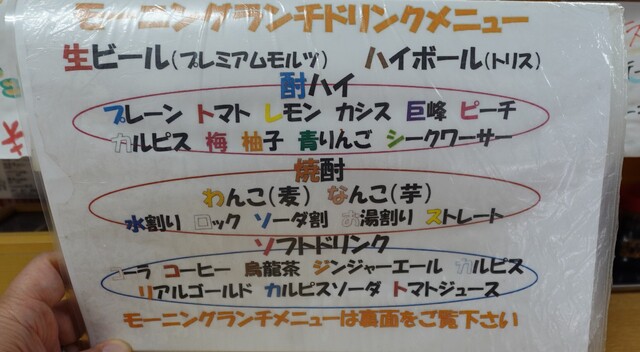 モーニングランチドリンクメニュー
生ビール(プレミアムモルツ) ハイボール(トリス)
酎ハイ
プレーン トマト レモン カシス 巨峰 ピーチ
カルピス 梅 柚子 青りんご シークワーサー
焼酎
わんこ(麦) なんこ(芋)
水割り ロック ソーダ割 お湯割り ストレート
ソフトドリンク
コーラ コーヒー 烏龍茶 ジンジャーエール カルピス
リアルゴールド カルピスソーダ トマトジュース
モーニングランチメニューは裏面をご覧下さい